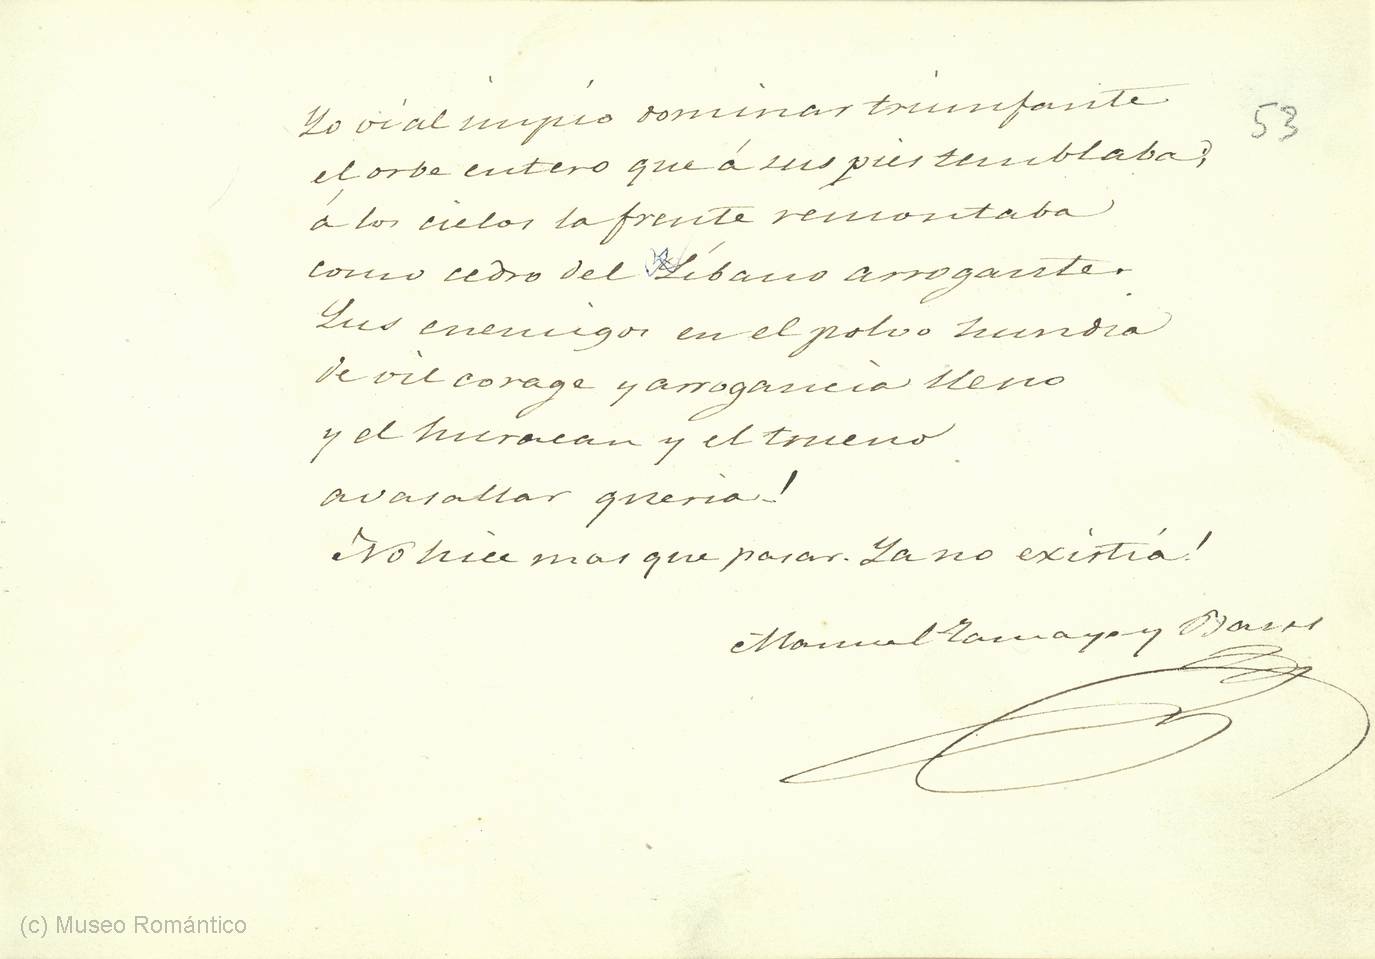 Yo vi al impio dominar triunfante
53
el orbe entero que á sus pies temblaba;
á los cielos la frente remontaba
como cedro del Líbano arrogante.
Sus enemigos en el polvo hundia
de vil corage y arrogancia lleno
y el huracan y el trueno
avasallar queria!
No hice mas que pasar. Ya no existía!
Manuel Tamayo y Baus
(c) Museo Romántico